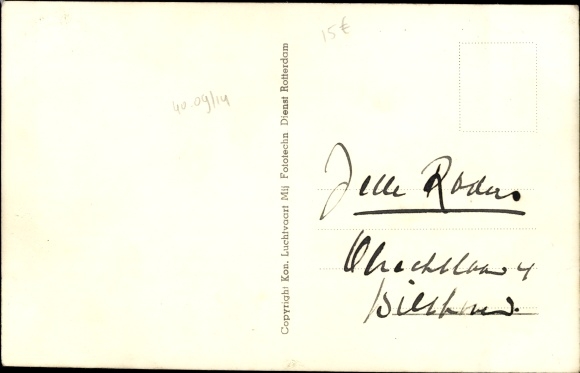 15€
40.09/14
Copyright Kon. Luchtvaart Mij Fototechn Dienst Rotterdam
Jelle Roders
4
Bilthoven.